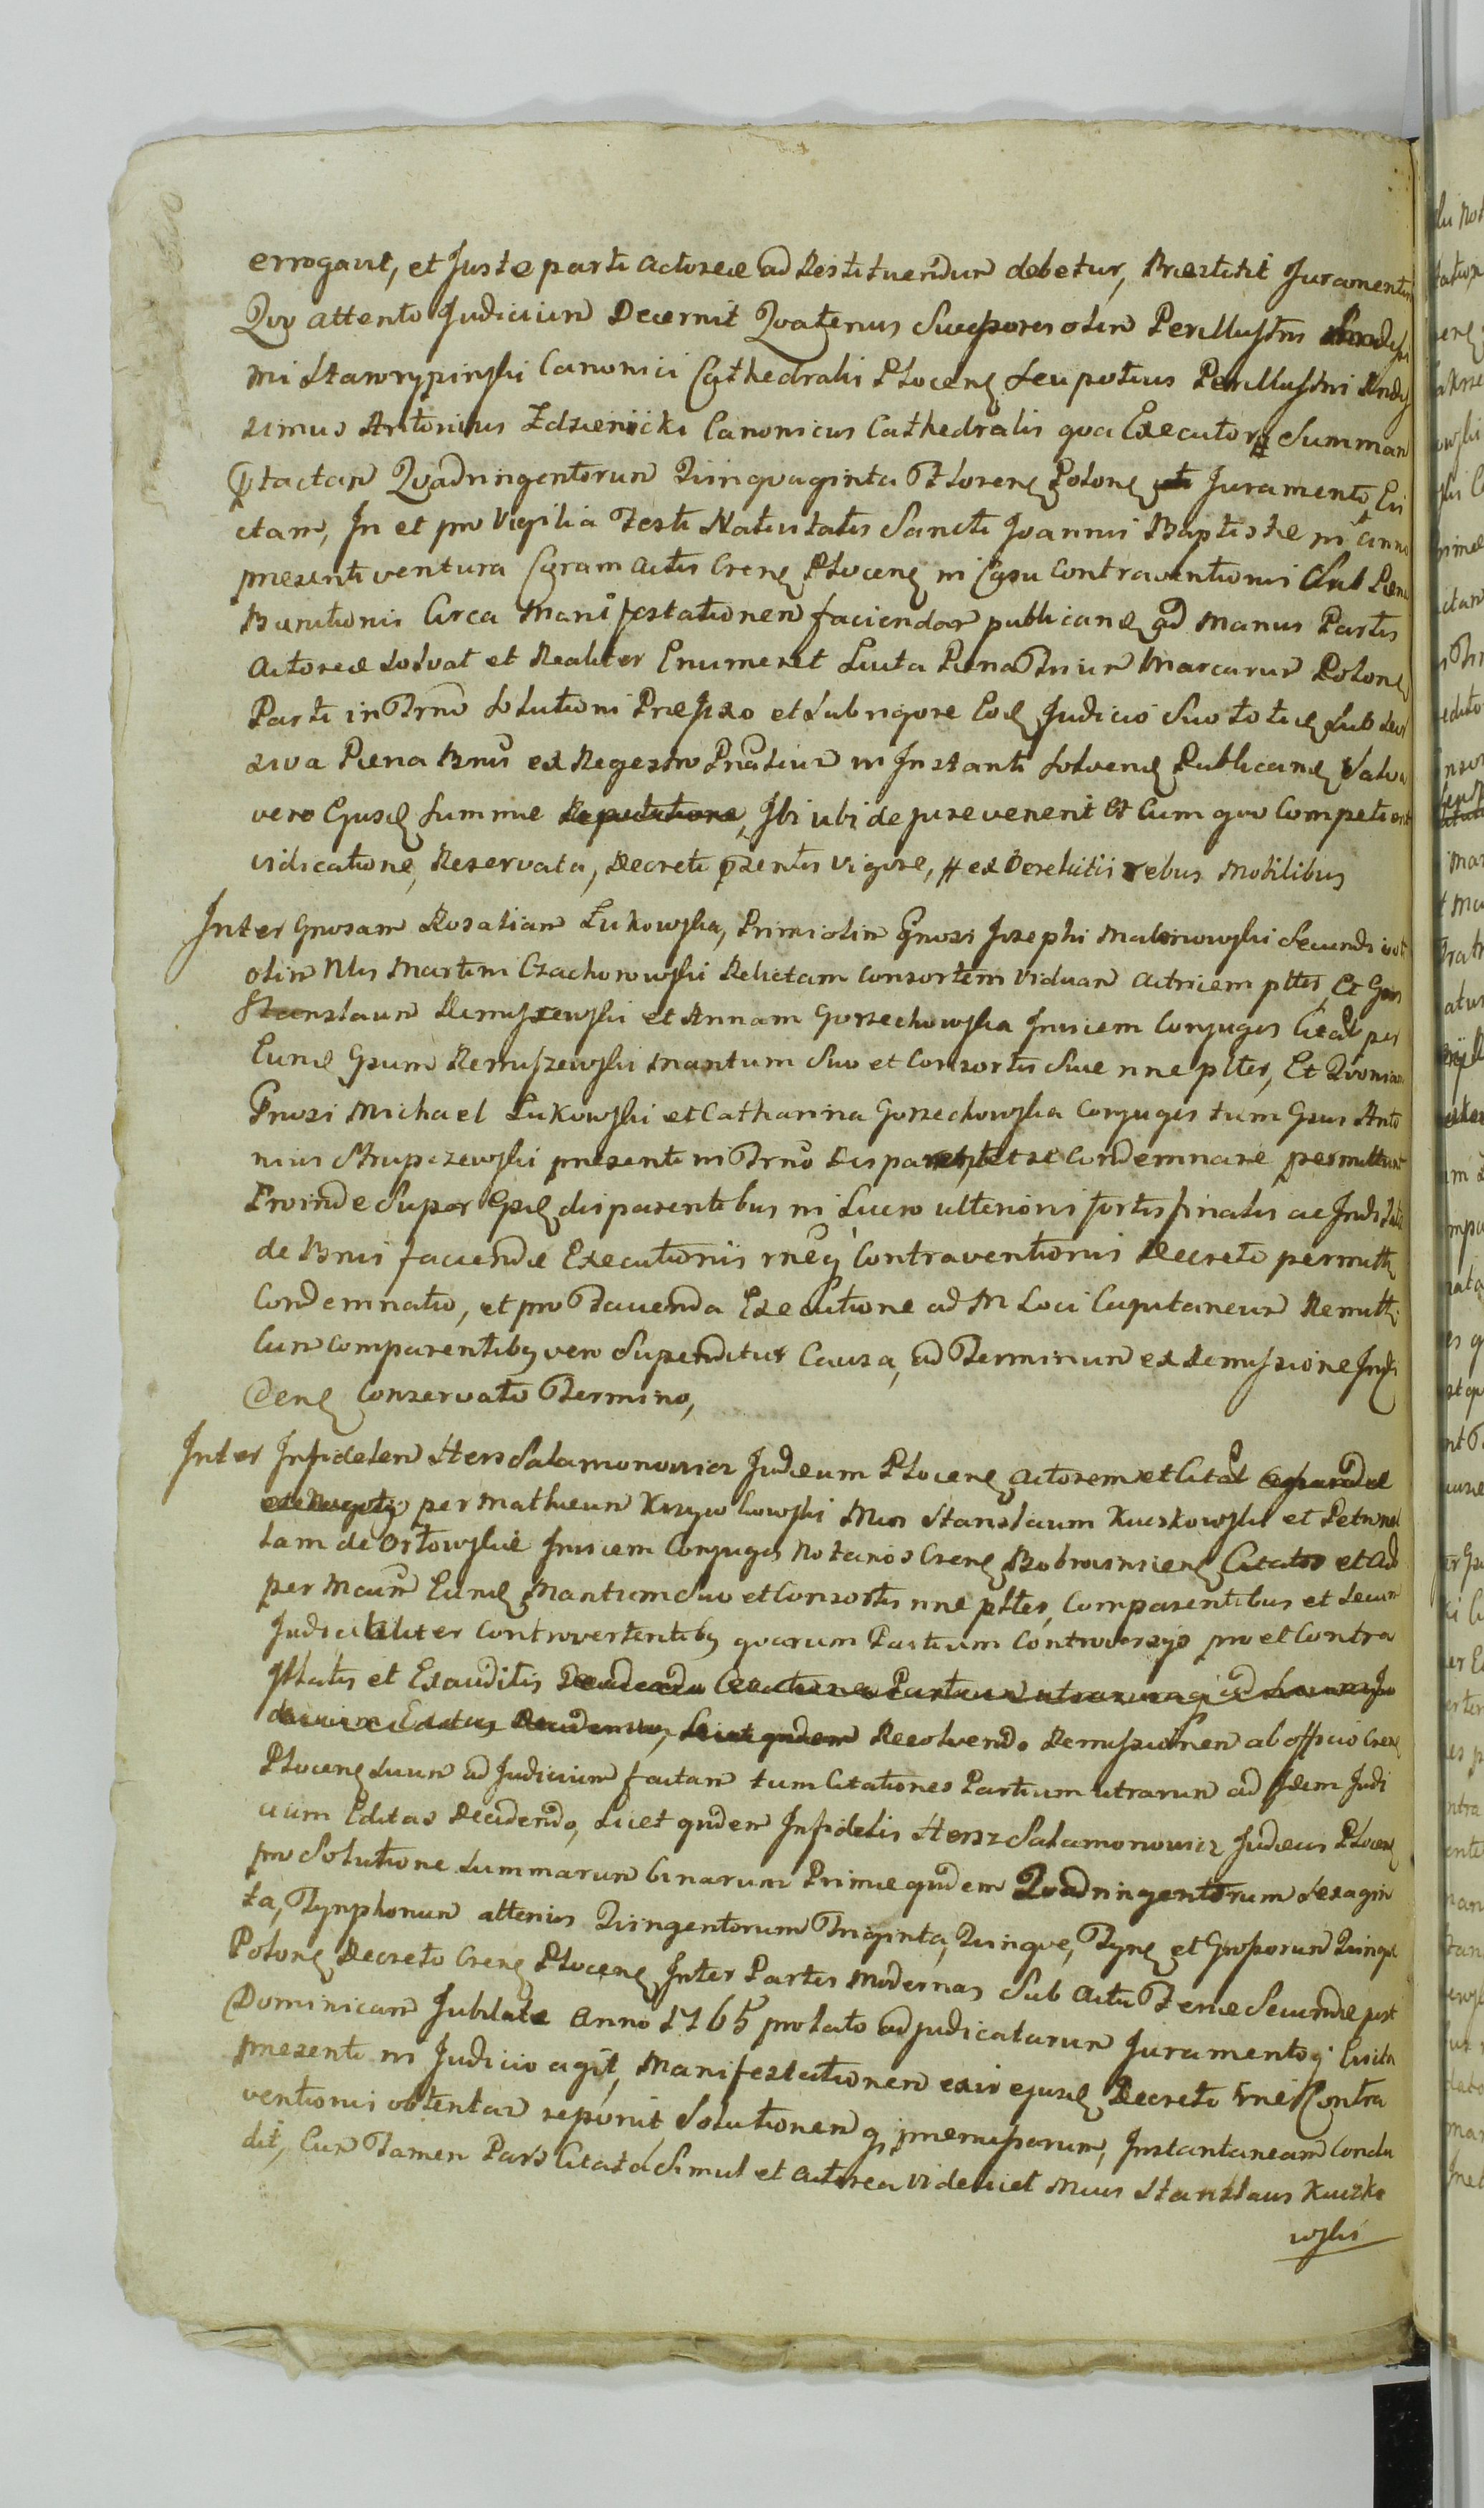 errogavit, et Juste parti actoreæ ad Restituendum debetur, Præstitit Juramentum
Quo attento Judicium Decernit Quatenus Successores olim Perillustris
mi Stawrypinski Canonici Cathedralis Plocen Seu potius Perillustris Rndis
simus Antonius Zdzienicki Canonicus Cathedralis qua Executor # Summam
ptactam Quadringentorum Quinquaginta Floren Polon Juramento Evi
ctam, In et pro Vigilia Festi Nativitatis Sancti Joannis Baptistæ in anno
presenti ventura Coram actis Cren Plocen in Casu Contraventionis Sub Pæna
Banitionis Circa Manifestationem faciendam publicand ad Manus Partis
Actoreæ Solvat et Realiter Enumeret Luita Pæna Trium Marcarum Polon
Parti in Trno Solutioni Præfixo et Sub rigore Eod Judicio Suo toties Sub Suc
siva Pæna Bnis ex Regestro Pnatium in Instanti Solvend Publicand Salva
vero Ejusd Summæ Reputatione, Ibi ubi de jure venerit et Cum quo Competierit
vidicatione, Reservata, Decreti pzentis vigore, # ex Derelictis rebus Mobilibus
Inter Gnosam Rosaliam Lukowska, Primi olim Gnosi Josephi Malonowski Secundi voti
olim Nlis Martini Czachorowski Relictam Consortem Viduam Actricem pltes, Et Gsos
Stanslaum Remiszewski et Annam Gorzechowska Invicem Conjuges Citat per
Eund Gsum Remiszewski Maritum Suo et Consortis Suæ nne pltes, Et Quoniam
Gnosi Michael Lukowski et Catharina Gorzechowska Conjuges tum Gsus Anto
nius Strupczewski presenti in Trno Disparent, et se Condemnare permittunt
Proinde Super Gsis disparentibus in Lucro ulterioris fortis finalis ac Indilate
de Bnis faciendæ Executionis rneq Contraventionis Decreto permitti
Condemnatio, et pro Facienda Executione ad M Loci Capitaneum Remitti
Cum Comparentibus vero Supenditur Causa, ad Terminum ex Remissione Inci
den Conservato Termino,
Inter Infidelem Hers Salamonowicz Judæum Plocen actorem et Citat
per Mathæum Krzywkowski Mcos Stanslaum Kuczkowski et Petronel
lam de Orlowskie Invicem Conjuges Notarios Cren Bobrownicen Citatos et Act
per Mcum Eund Maritum Suo et Consortis nne pltes, Comparentibus et Secum
Judicialiter Controvertentibus quarum Partium Controversys pro et Contra
Illatis et Exauditis
Resolvendo Remissionem ab officio Cren
Plocen Suum ad Judicium factam tum Citationes Partium utrarum ad Idem Judi
cium Editas Decidendo, Licet quidem Infidelis Hersz Salamonowicz Judæus Plocen
pro Solutione Summarum binarum Primæ quidem Quadringentorum Sexagin
ta, Tynphonum alterius Quingentorum Triginta, Quinque, Tyn et Grossorum Quinque
Polon Decreto Cren Plocen Inter Partes Modernas Sub Actu Feriæ Secundæ post
Dominicam Jubilate Anno 1765 prolato adjudicatarum Juramentoq Evicta
presenti in Judicio agit, Manifestationem exiv ejusd Decreto rnes Contra
ventionis obtentam reponit, Solutionem q premissorum, Instantaneam Condu
dit, Cum Tamen Pars Citata Simul et Actorea videlicet Mcus Stanslaus Kuczko
wski